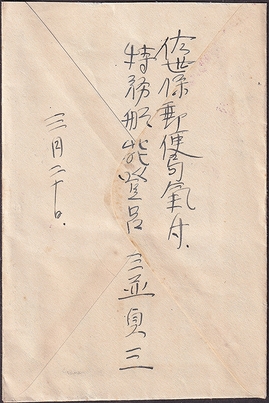 佐世保郵便局氣付
特務艦能登呂 三並貞三
三月二十日